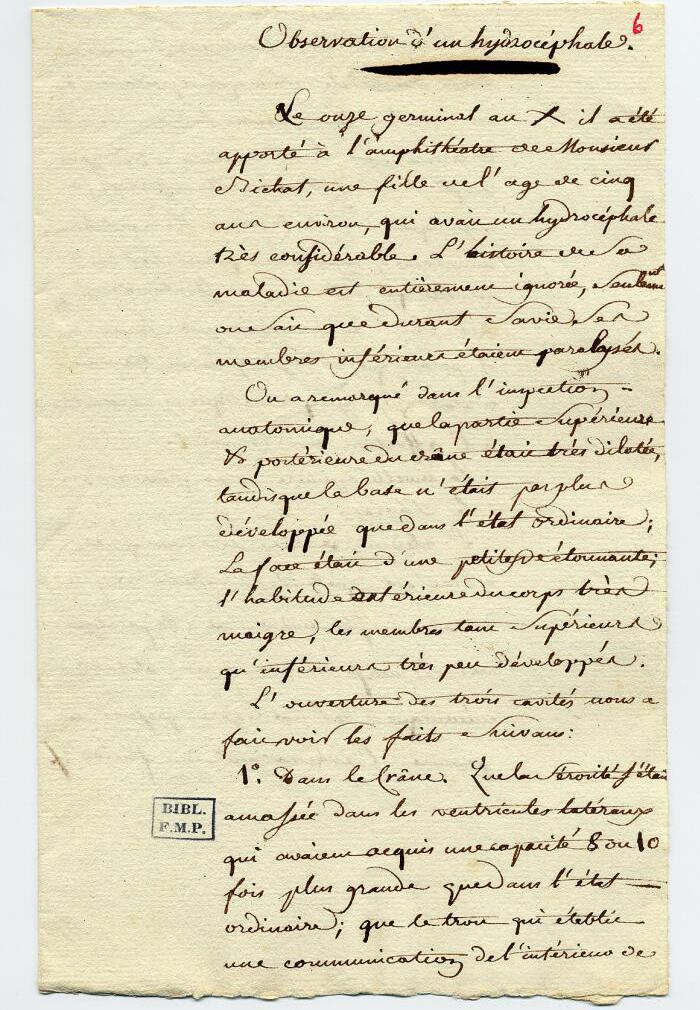 6
Observation d'un hydrocéphale.
Le onze germinal an X il a été
apporté à l'amphithéatre de Monsieur
Bichat, une fille de l'age de cinq
ans environ, qui avait un hydrocéphale
très considérable. L'histoire de sa
maladie est entièrement ignorée, seulement
on sait que durant sa vie, ses
membres inférieurs étaient paralysés.
On a remarqué dans l'inspection
anatomique, que la partie supérieure
& postérieure du crâne était très dilatée,
tandis que la base n'était pas plus
développée que dans l'état ordinaire;
La face était d'une petitesse étonnante;
l'habitude extérieure du corps très
maigre, les membres tant supérieurs
qu'inférieurs très peu développés.
L'ouverture des trois cavités nous a
fait voir les faits suivans:
1º. Dans le Crâne. Que la sérosité s'était
amassée dans les ventricules latéraux
qui avaient acquis une capacité 8 ou 10
fois plus grande que dans l'état
ordinaire; que le trou qui établit
une communication de l'intérieur de
BIBL.
F.M.P.